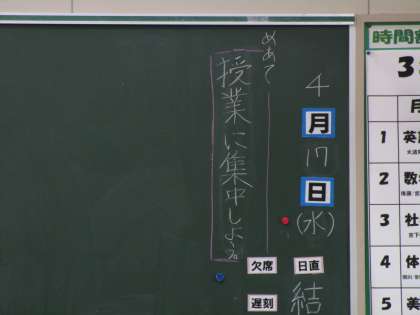 めあて
授業に集中しよう。
4月17日(水)
欠席
日直
遅刻
結
時間
3
月
1 英
2 数
3 社
4 体
5 美